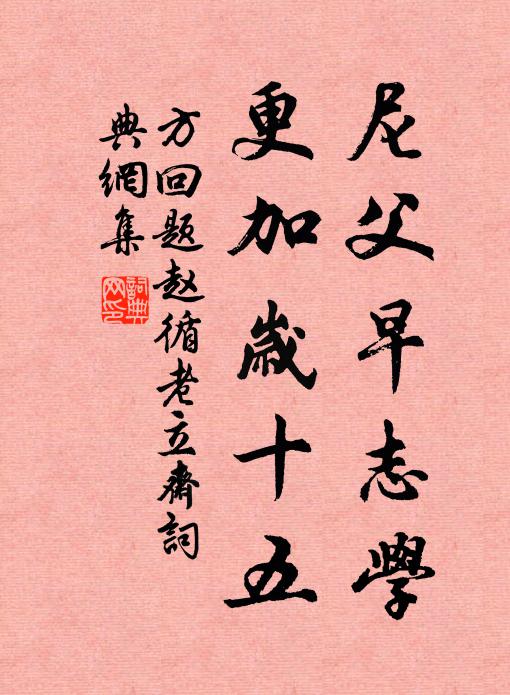 尼父早志學
更加歲十五
方回题赵循老立齋詞
典網集
詞典网印